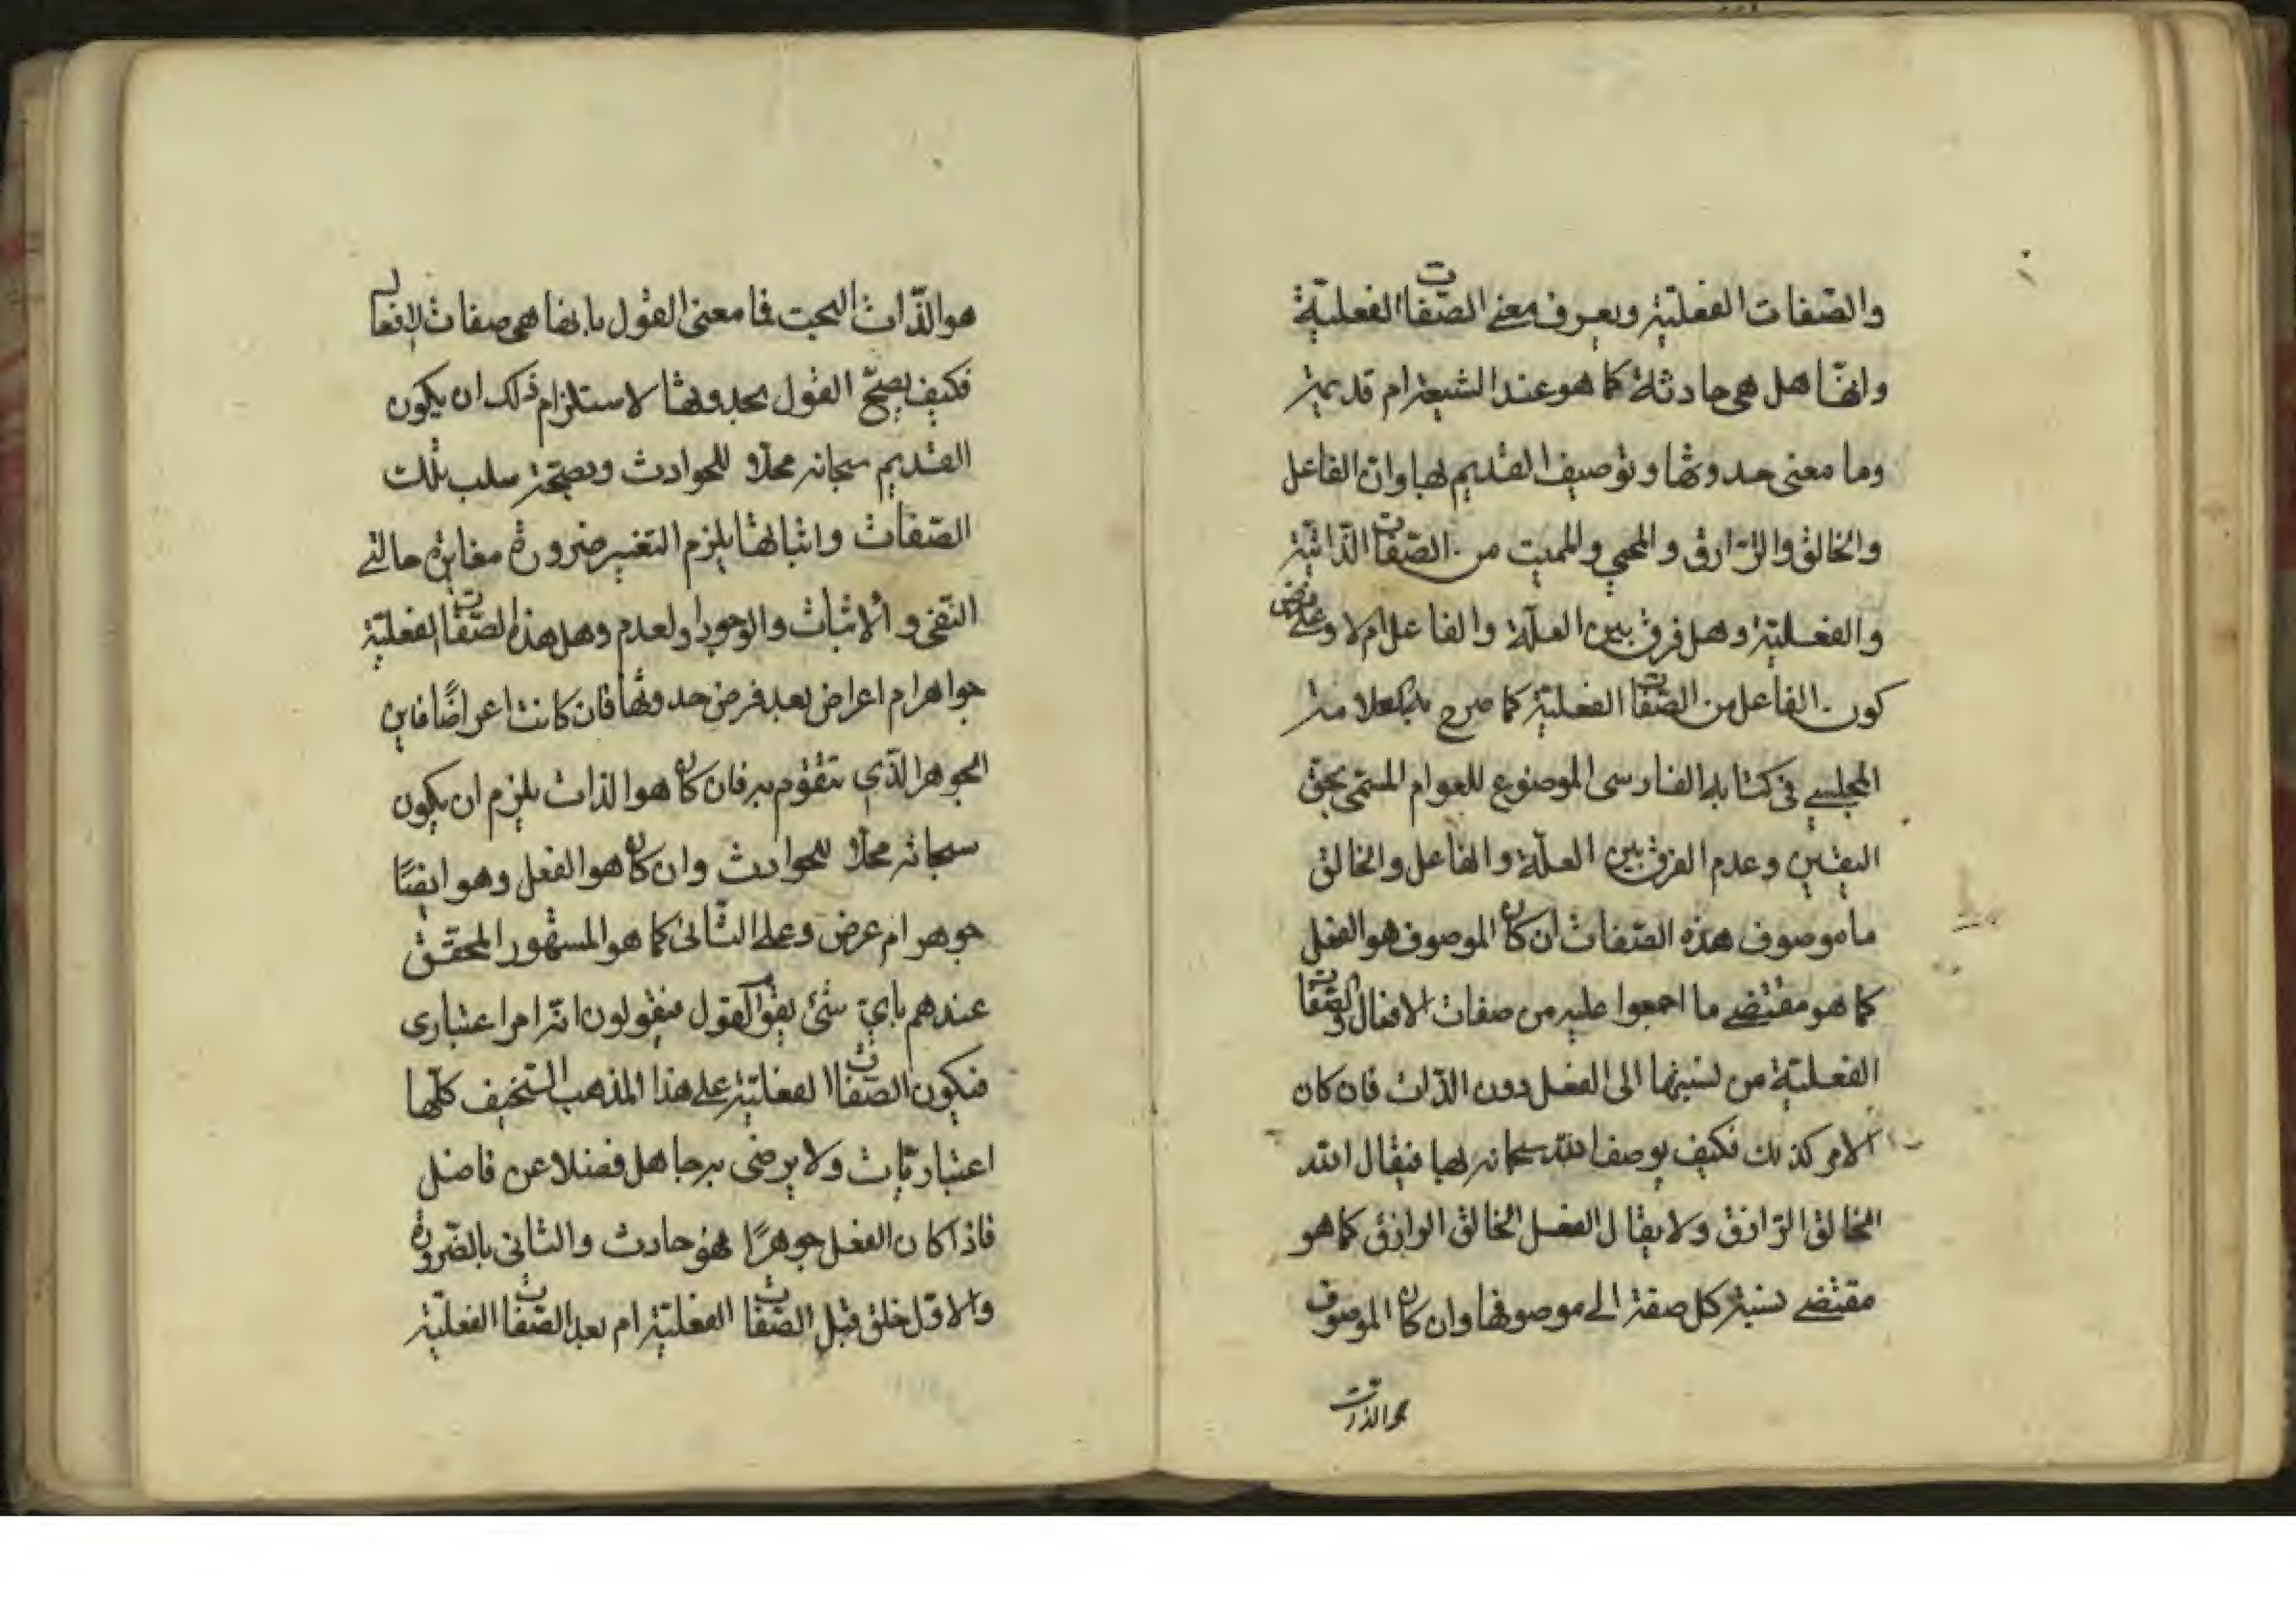 والصّفات الفعليّة ويعرف معنى الصّفات الفعليّة
وانّها هل هي حادثة كما هو عند الشيعة ام قديمة
وما معنى حدوثها وتوصيف القديم بها وان الفاعل
والخالق والرّازق والمحيي والمميت من الصّفات الذّاتيّة
والفعليّة وهل فرق بين العلّة والفاعل ام لا وعلى فرض
كون الفاعل من الصّفات الفعليّة كما صرح به
المجلسي في كتابه الفارسى الموضوع للعوام المسمّى بحق
اليقين وعدم الفرق بين العلّة والفاعل والخالق
ما موصوف هذه الصّفات ان كان الموصوف هو الفعل
كما هو مقتضى ما اجمعوا عليه من صفات الافعال والصّفات
الفعليّة من نسبتها الى الفعل دون الذّات فان كان
الامر كذلك فكيف يوصف الله سبحانه بها فيقال الله
الخالق الرّازق ولا يقال الفعل الخالق الرازق كما هو
مقتضى نسبة كل صفة الى موصوفها وان كان الموصوف
هو الذات
هو الذّات البحت فما معنى القول بانها هي صفات الافعال
فكيف يصحّ القول بحدوثها لاستلزام ذلك ان يكون
القديم سبحانه محلّا للحوادث وبصحّة سلب تلك
الصّفات واثباتها يلزم التغيير ضرورة مغايرة حالتي
النّفى والاثبات والوجود والعدم وهل هذه الصّفات الفعليّة
جواهر ام اعراض بعد فرض حدوثها فان كانت اعراضًا فاين
الجوهر الّذي تتقوّم به فان كان هو الذات يلزم ان يكون
سبحانه محلّا للحوادث وان كان هو الفعل وهو ايضًا
جوهر ام عرض وعلى الثّانى كما هو المشهور المحقق
عندهم باىّ شئ يقوم القول فيقولون انّه امر اعتبارى
فيكون الصّفات الفعليّة على هذا المذهب السّخيف كلّها
اعتباريّات ولا يرضى به جاهل فضلا عن فاضل
فاذا كان الفعل جوهرًا فهو حادث والثانى بالضّرورة
والاوّل خلق قبل الصّفات الفعليّة ام بعد الصّفات الفعليّة